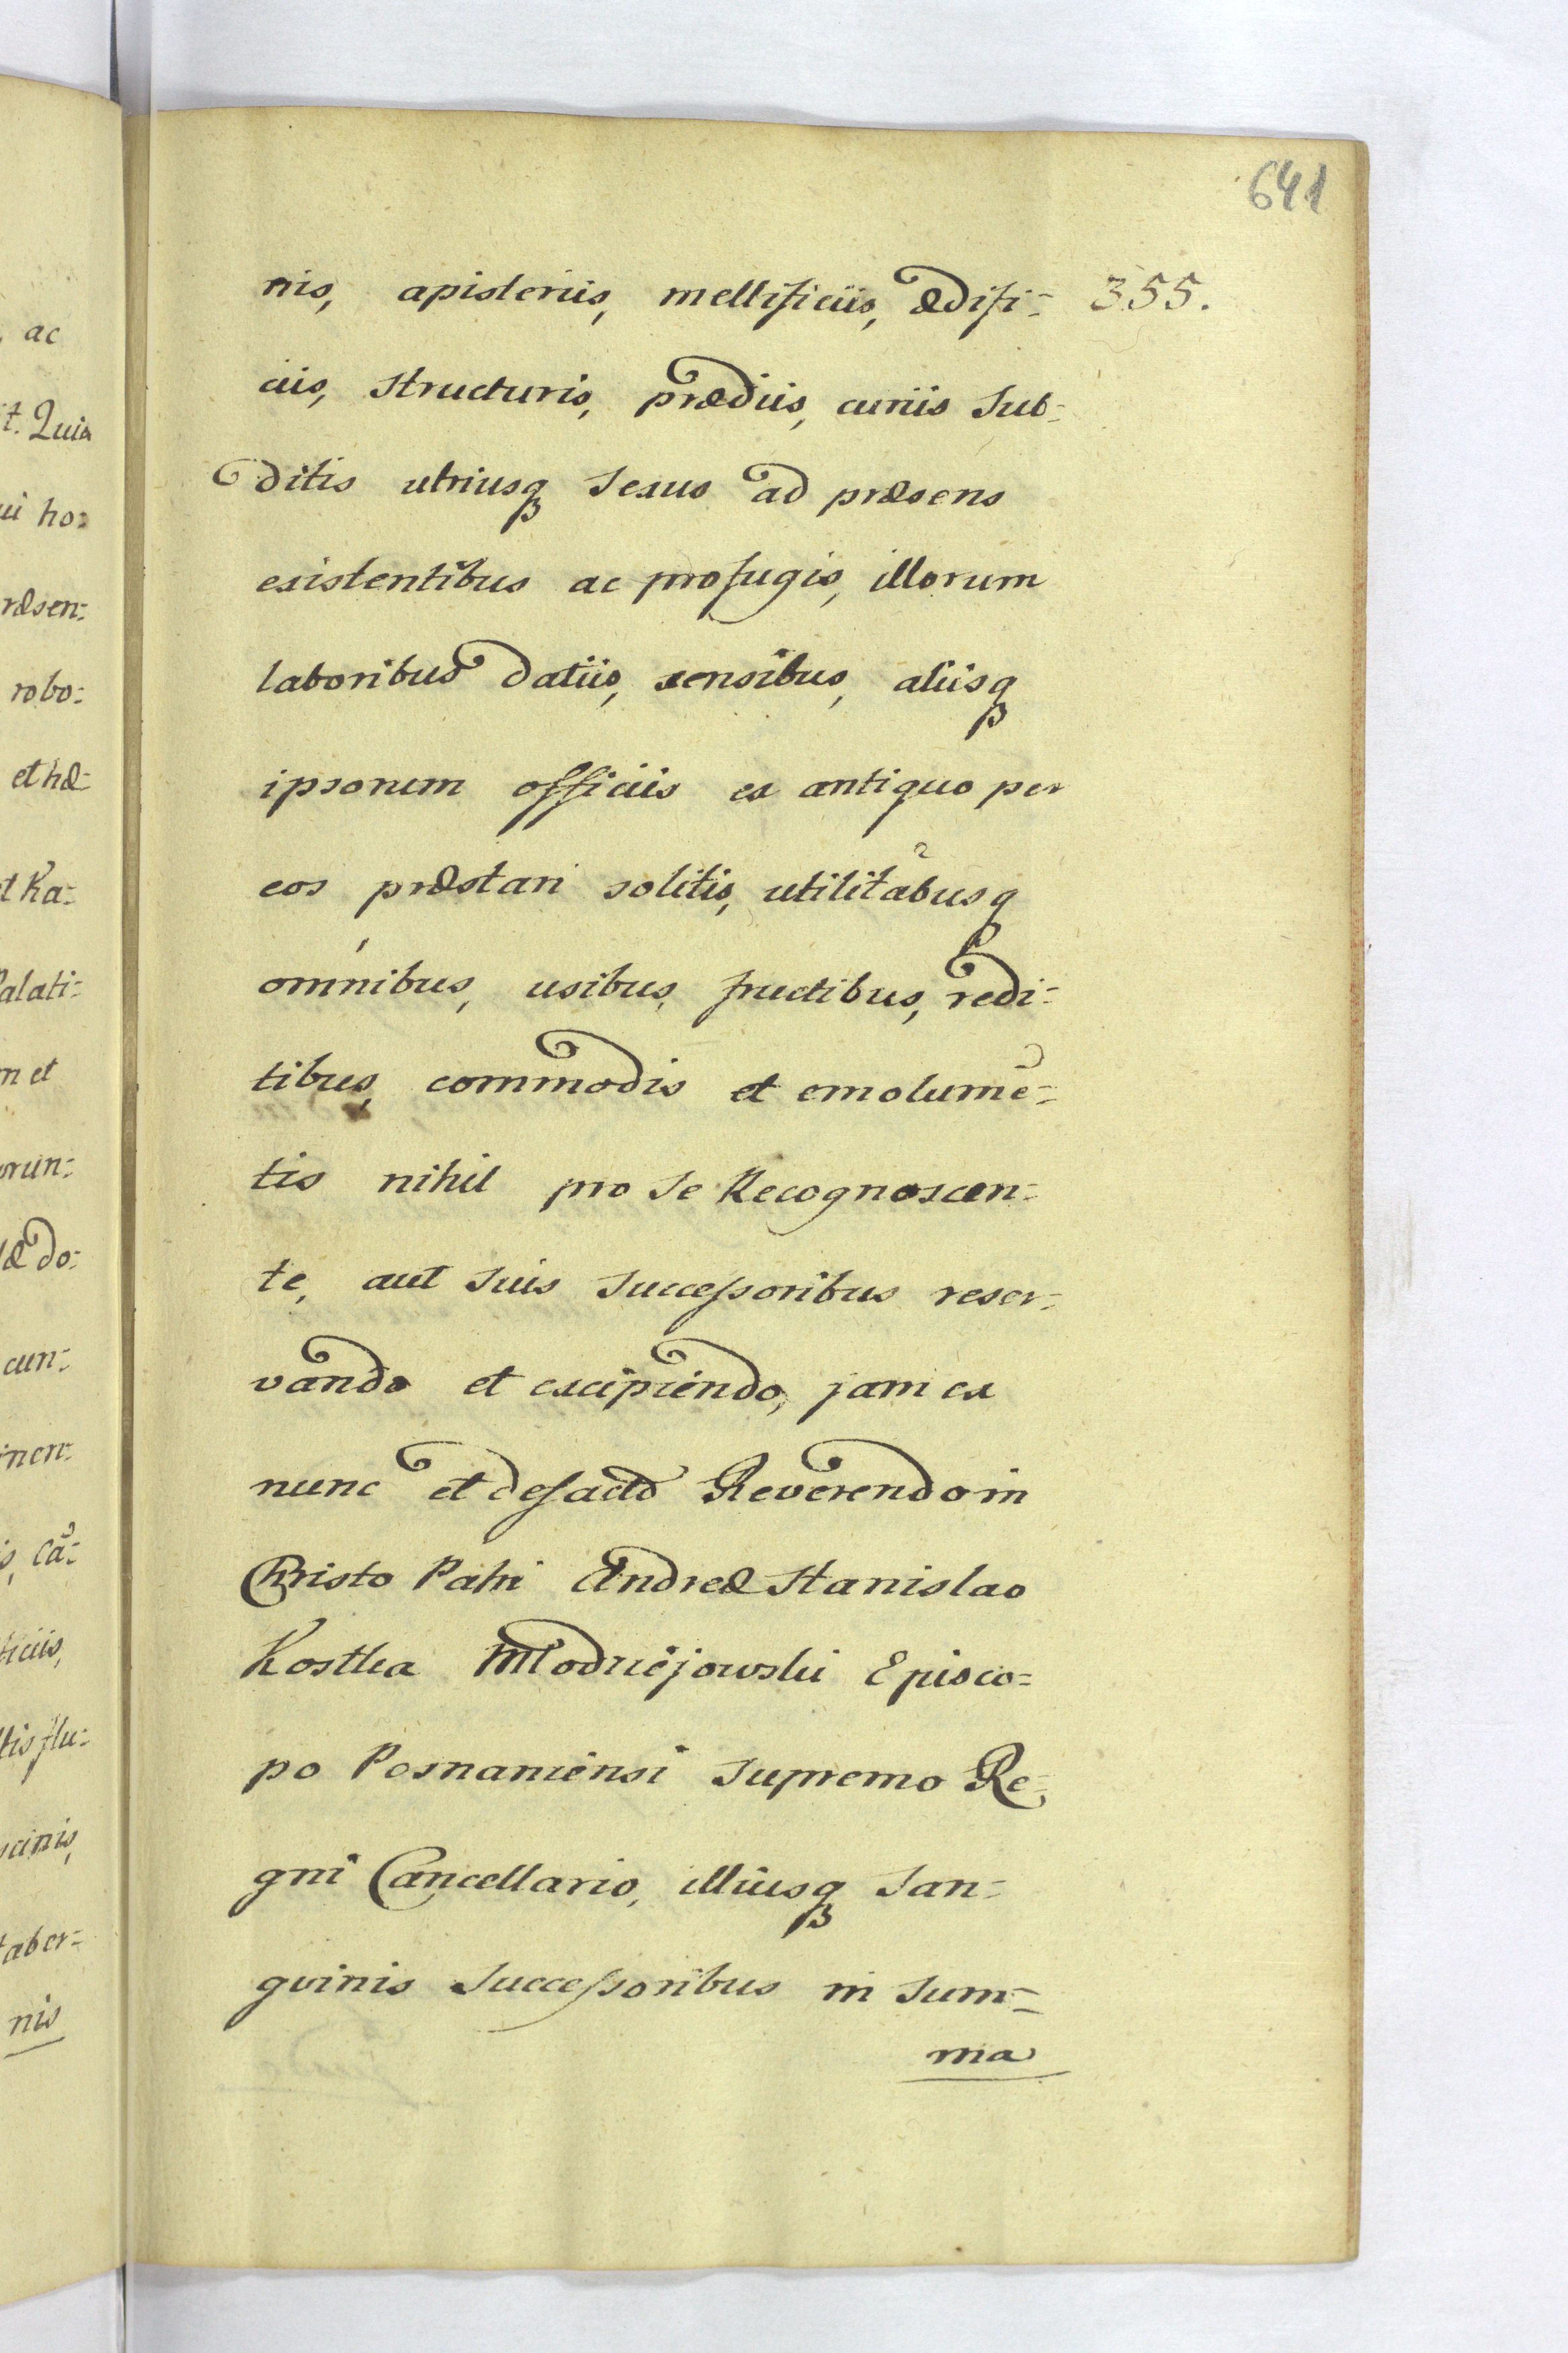 641
nis, apisteriis, mellificiis, ædifi= 355.
ciis, structuris, prædiis, curiis sub=
ditis utriusq̃ sexus ad præsens
existentibus ac profugis, illorum
laboribus datiis, censibus, aliisq̃
ipsorum officiis ex antiquo per
eos præstari solitis, utilitãbusq̃
omnibus, usibus, fructibus, redi=
tibus, commodis et emolumẽ=
tis nihil pro se Recognoscen=
te, aut suis successoribus reser=
vando et excipiendo, jam ex
nunc et defacto Reverendo in
Christo Patri Andreæ Stanislao
Kostka Młodziejowski Episco=
po Posnaniensi supremo Re=
gni Cancellario, illiusq̃ san=
gvinis successoribus in sum=
ma
ac
t. Quia
ui ho=
ræsen=
robo=
et hæ=
et Ka=
Palati=
m et
orun=
læ do=
cun=
inen=
s, cã=
ficiis,
ltis flu=
scinis,
taber=
nis